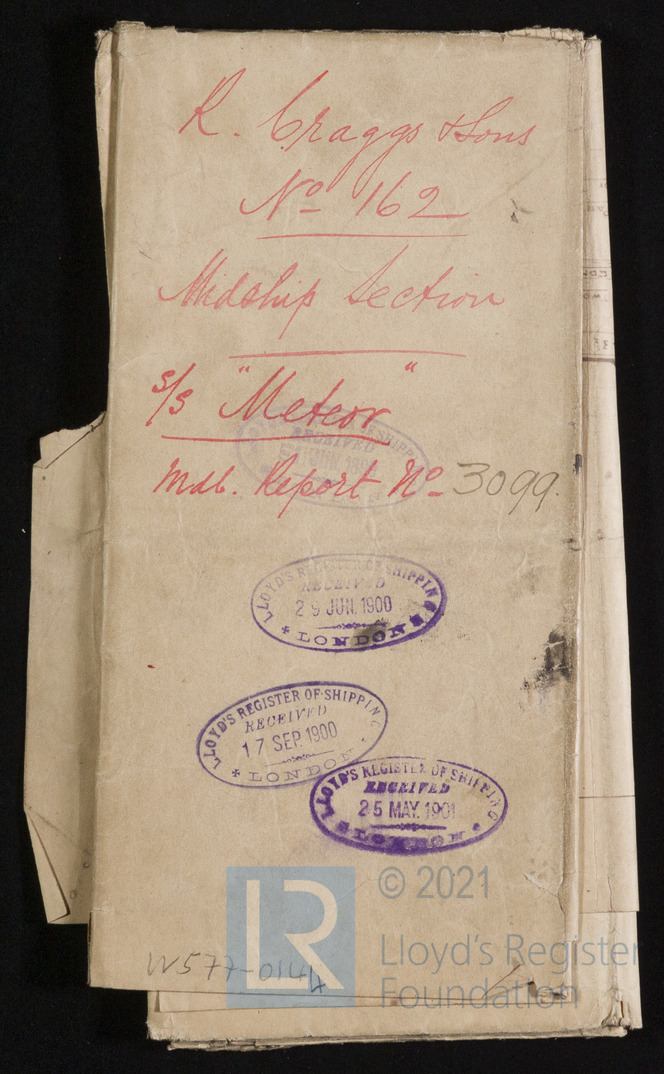 R. Craggs & Sons
No 162
Midship Section
s/s "Meteor"
Mdb. Report No 3099.
OF SHIPPING
RECEIVED
LLOYD'S REGISTER OF SHIPPING
RECEIVED
29 JUN. 1900
LONDON
LLOYD'S REGISTER OF SHIPPING
RECEIVED
17 SEP. 1900
LONDON
LLOYD'S REGISTER OF SHIPPING
RECEIVED
25 MAY. 1901
LONDON
W577-0144
LR
© 2021
Lloyd's Register
Foundation